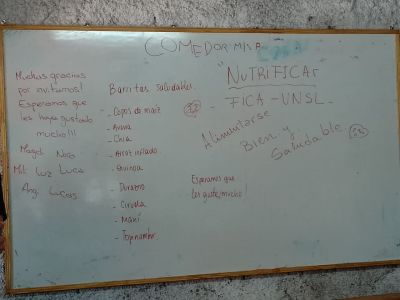 COMEDOR MIS A
Muchas gracias
por invitarnos!
Esperamos que
les haya gustado
mucho!!!
Magal Nico
Mili Luz Luca
Ang. Lucas
Barritas Saludables.
- Copos de maíz
- Avena
- Chía
- Arroz inflado
- Quinoa
- Durazno
- Ciruela
- Maní
- Topinambur
Esperamos que
les guste mucho!
"NutriFICAr
- FICA - UNSL -
Alimentarse
Bien y
Saludable.